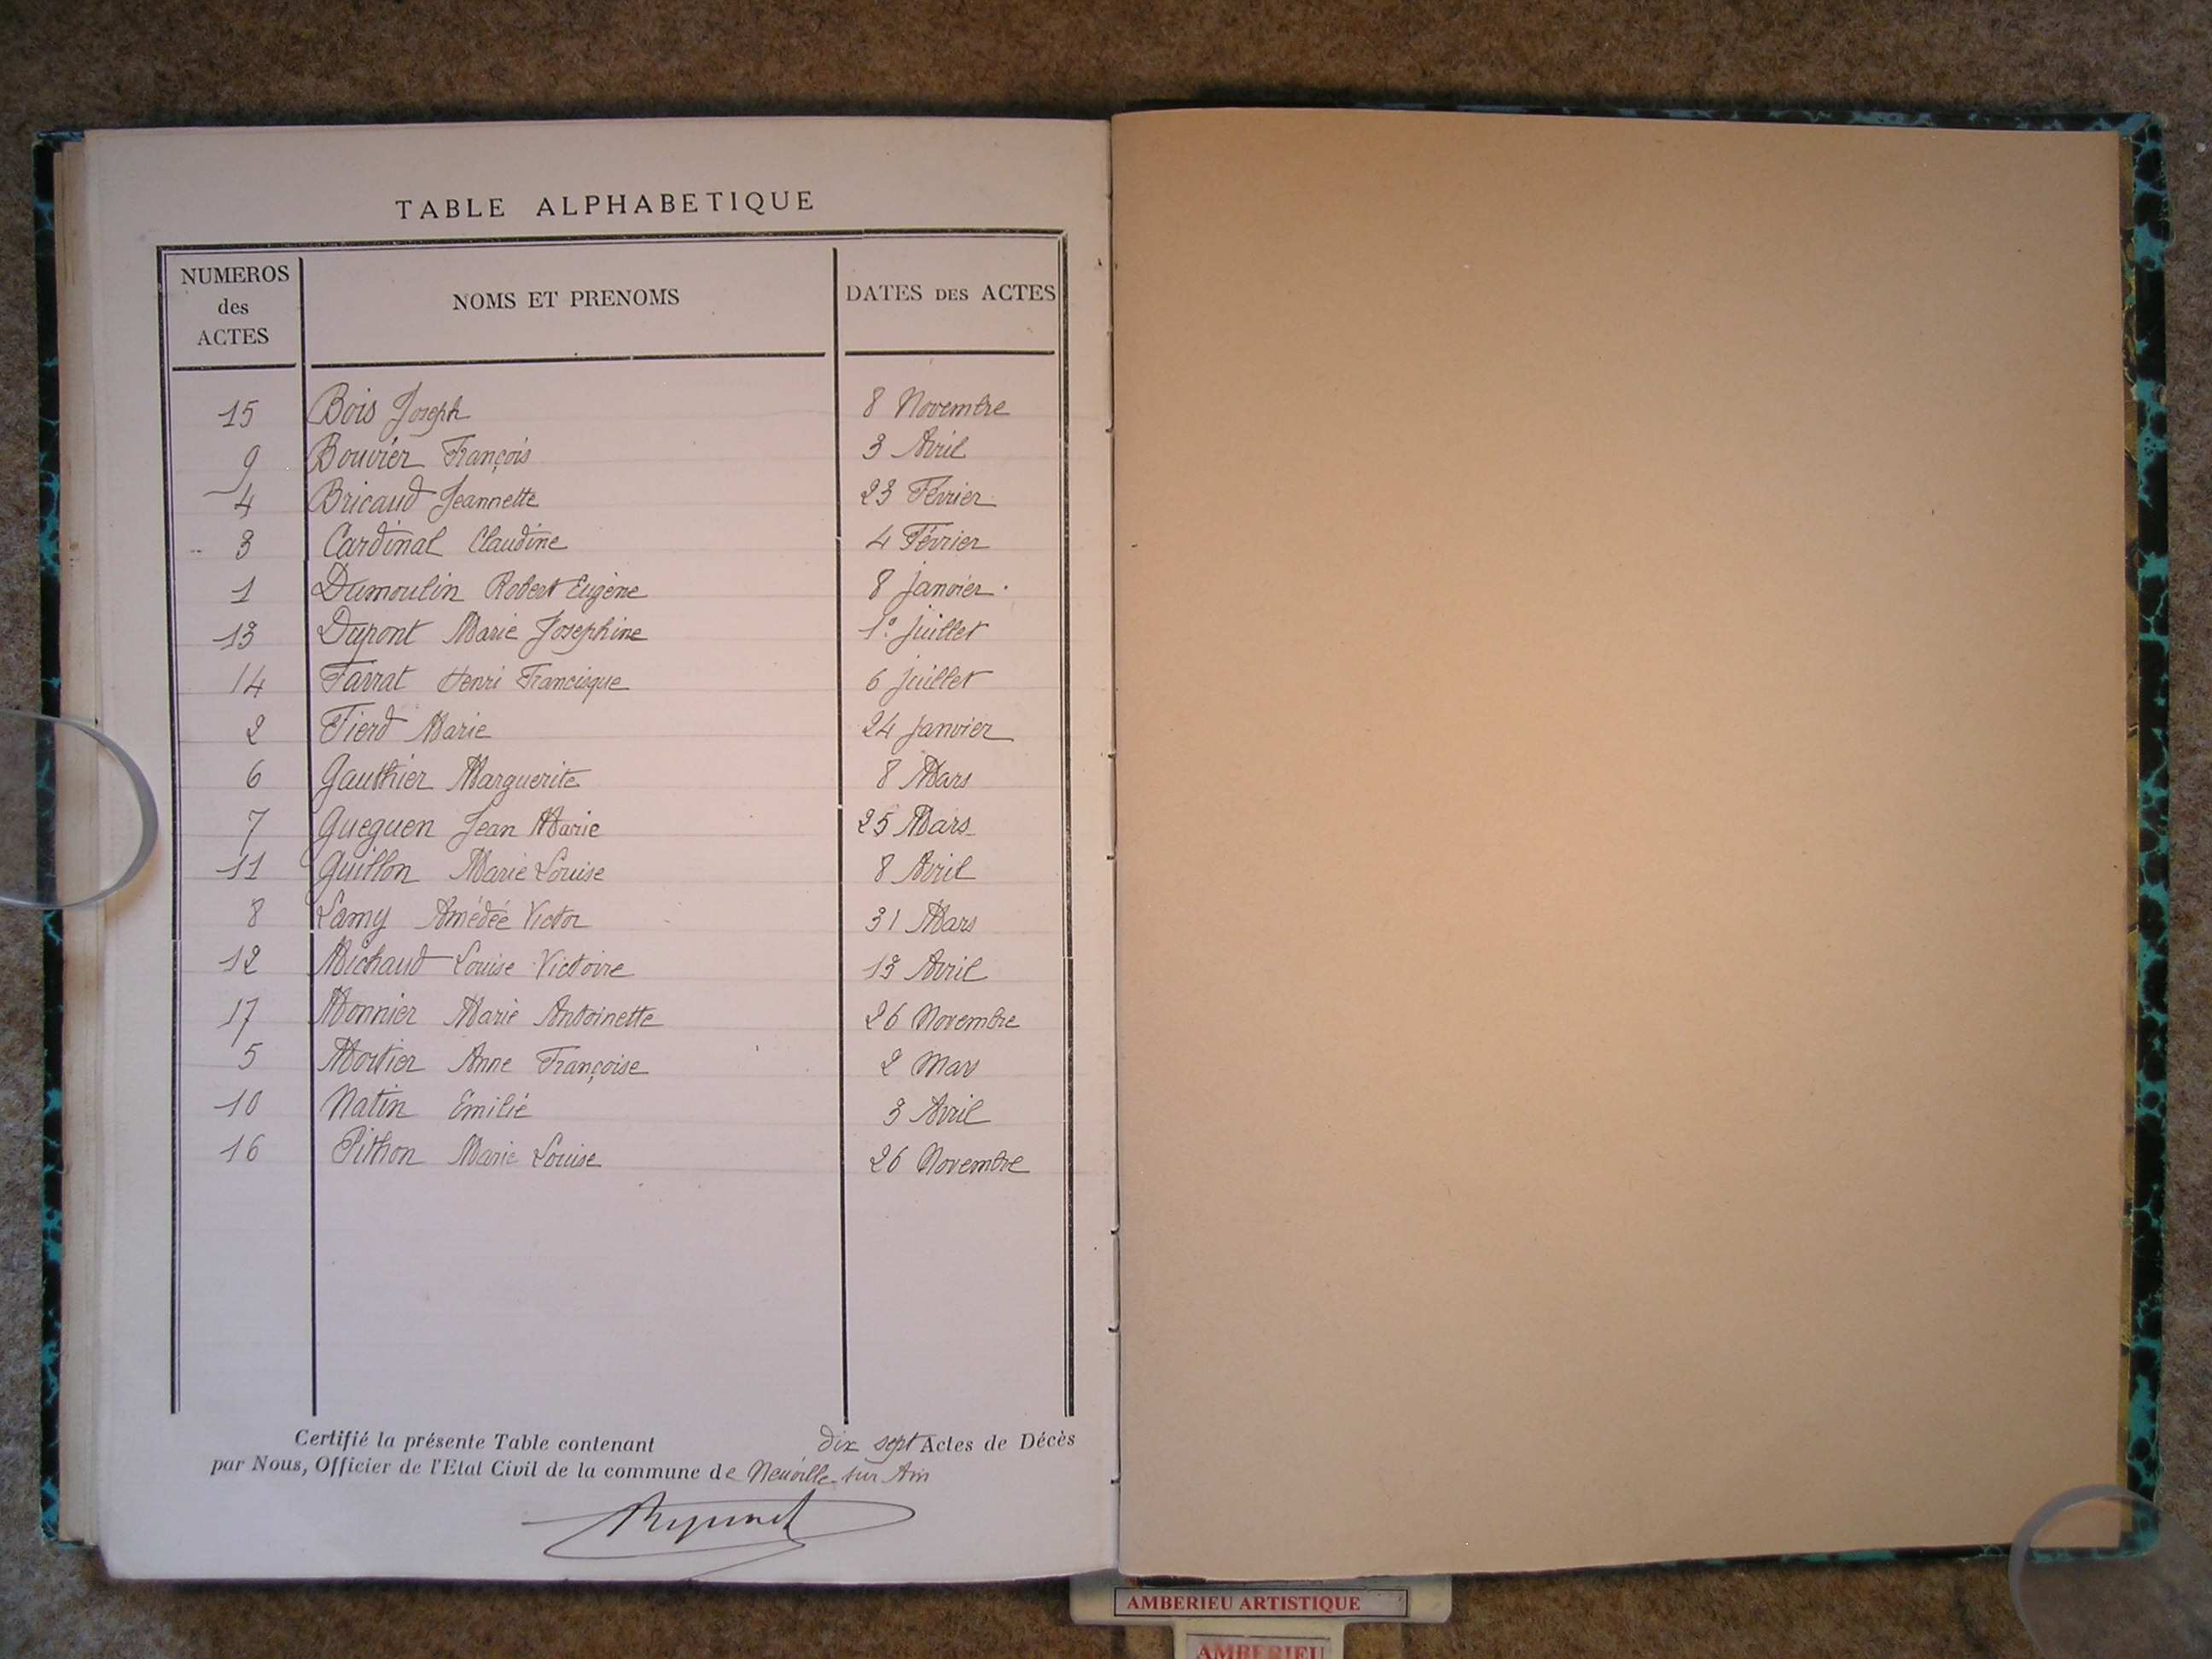 TABLE ALPHABETIQUE
NUMEROS des ACTES NOMS ET PRENOMS DATES DES ACTES
15 Bois Joseph 8 Novembre
9 Bouvier François 3 Avril
4 Bricaud Jeannette 23 Février
3 Cardinal Claudine 4 Février
1 Dumoulin Robert Eugène 8 janvier
13 Dupont Marie Josephine 1º juillet
14 Farrat Henri Francisque 6 juillet
2 Fierd Marie 24 janvier
6 Gauthier Marguerite 8 Mars
7 Gueguen Jean Marie 25 Mars
11 Guillon Marie Louise 8 Avril
8 Lamy Amédée Victor 31 Mars
12 Michaud Louise Victoire 13 Avril
17 Monnier Marie Antoinette 26 Novembre
5 Mortier Anne Françoise 2 Mars
10 Natin Emilie 3 Avril
16 Pithon Marie Louise 26 Novembre
Certifié la présente Table contenant dix sept Actes de Décès
par Nous, Officier de l'Etat Civil de la commune de Neuville sur Ain
AMBERIEU ARTISTIQUE
AMBERIEU